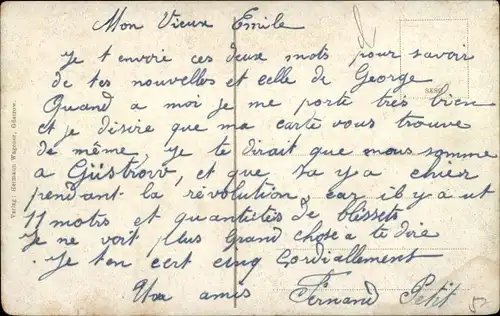 Mon Vieux Emile
Je t'envoie ces deux mots pour savoir
de tes nouvelles et celle de George
Quand a moi je me porte tres bien
et je désire que ma carte vous trouve
de même, je te dirait que nous somme
a Güstrow, et que sa y a chier
pendant la révolution, car il y a ut
11 morts et quantietés de blissets
Je ne voit plus grand chose a te dire
Je t'en cert cinq Cordiallement
Un amis Fernand Petit
Verlag: Hermann Wagener, Güstrow.